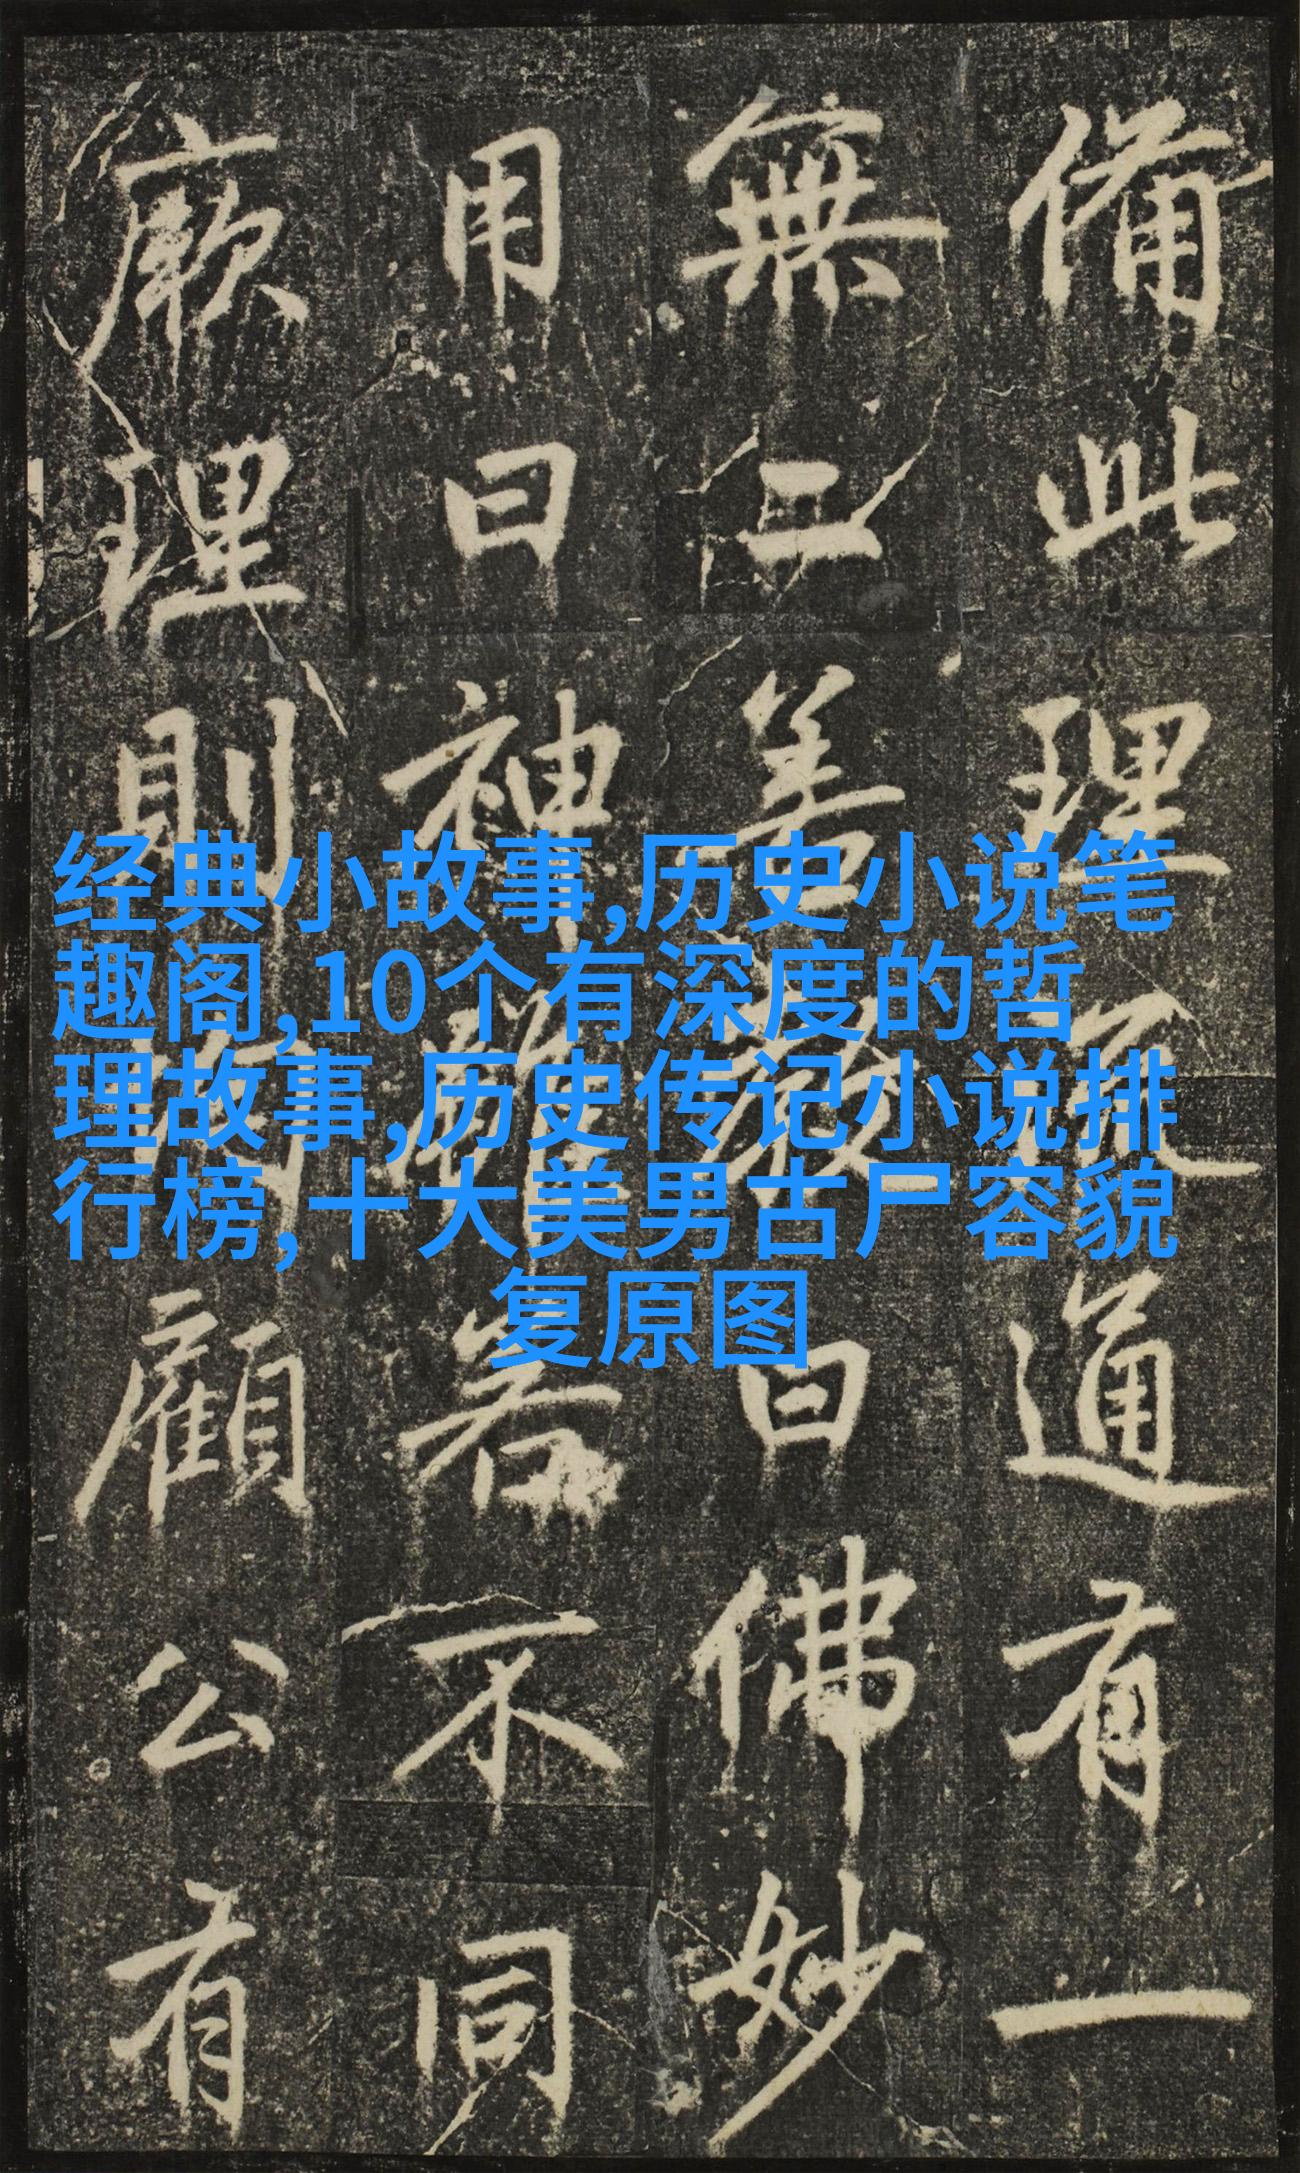 備此理通有一
無二善曰佛妙
用曰神若不同
厥理則顧公有
经典小故事,历史小说笔
趣阁,10个有深度的哲
理故事,历史传记小说排
行榜,十大美男古尸容貌
复原图